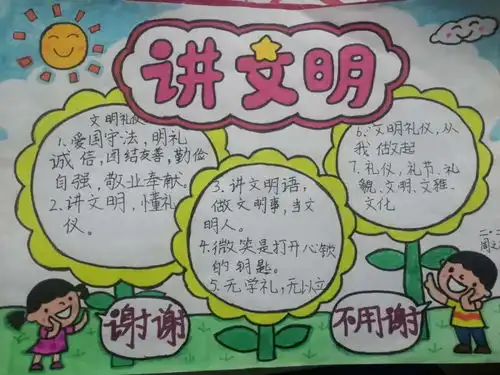 讲文明
文明礼仪
1.爱国守法,明礼
诚信,团结友善,勤俭
自强,敬业奉献。
2.讲文明,懂礼
仪。
3.讲文明语,
做文明事,当文
明人。
4.微笑是打开心锁
的钥匙。
5.无学礼,无以立
6.文明礼仪,从
我做起
7.礼仪,礼节、礼
貌、文明、文雅、
文化
谢谢
不用谢